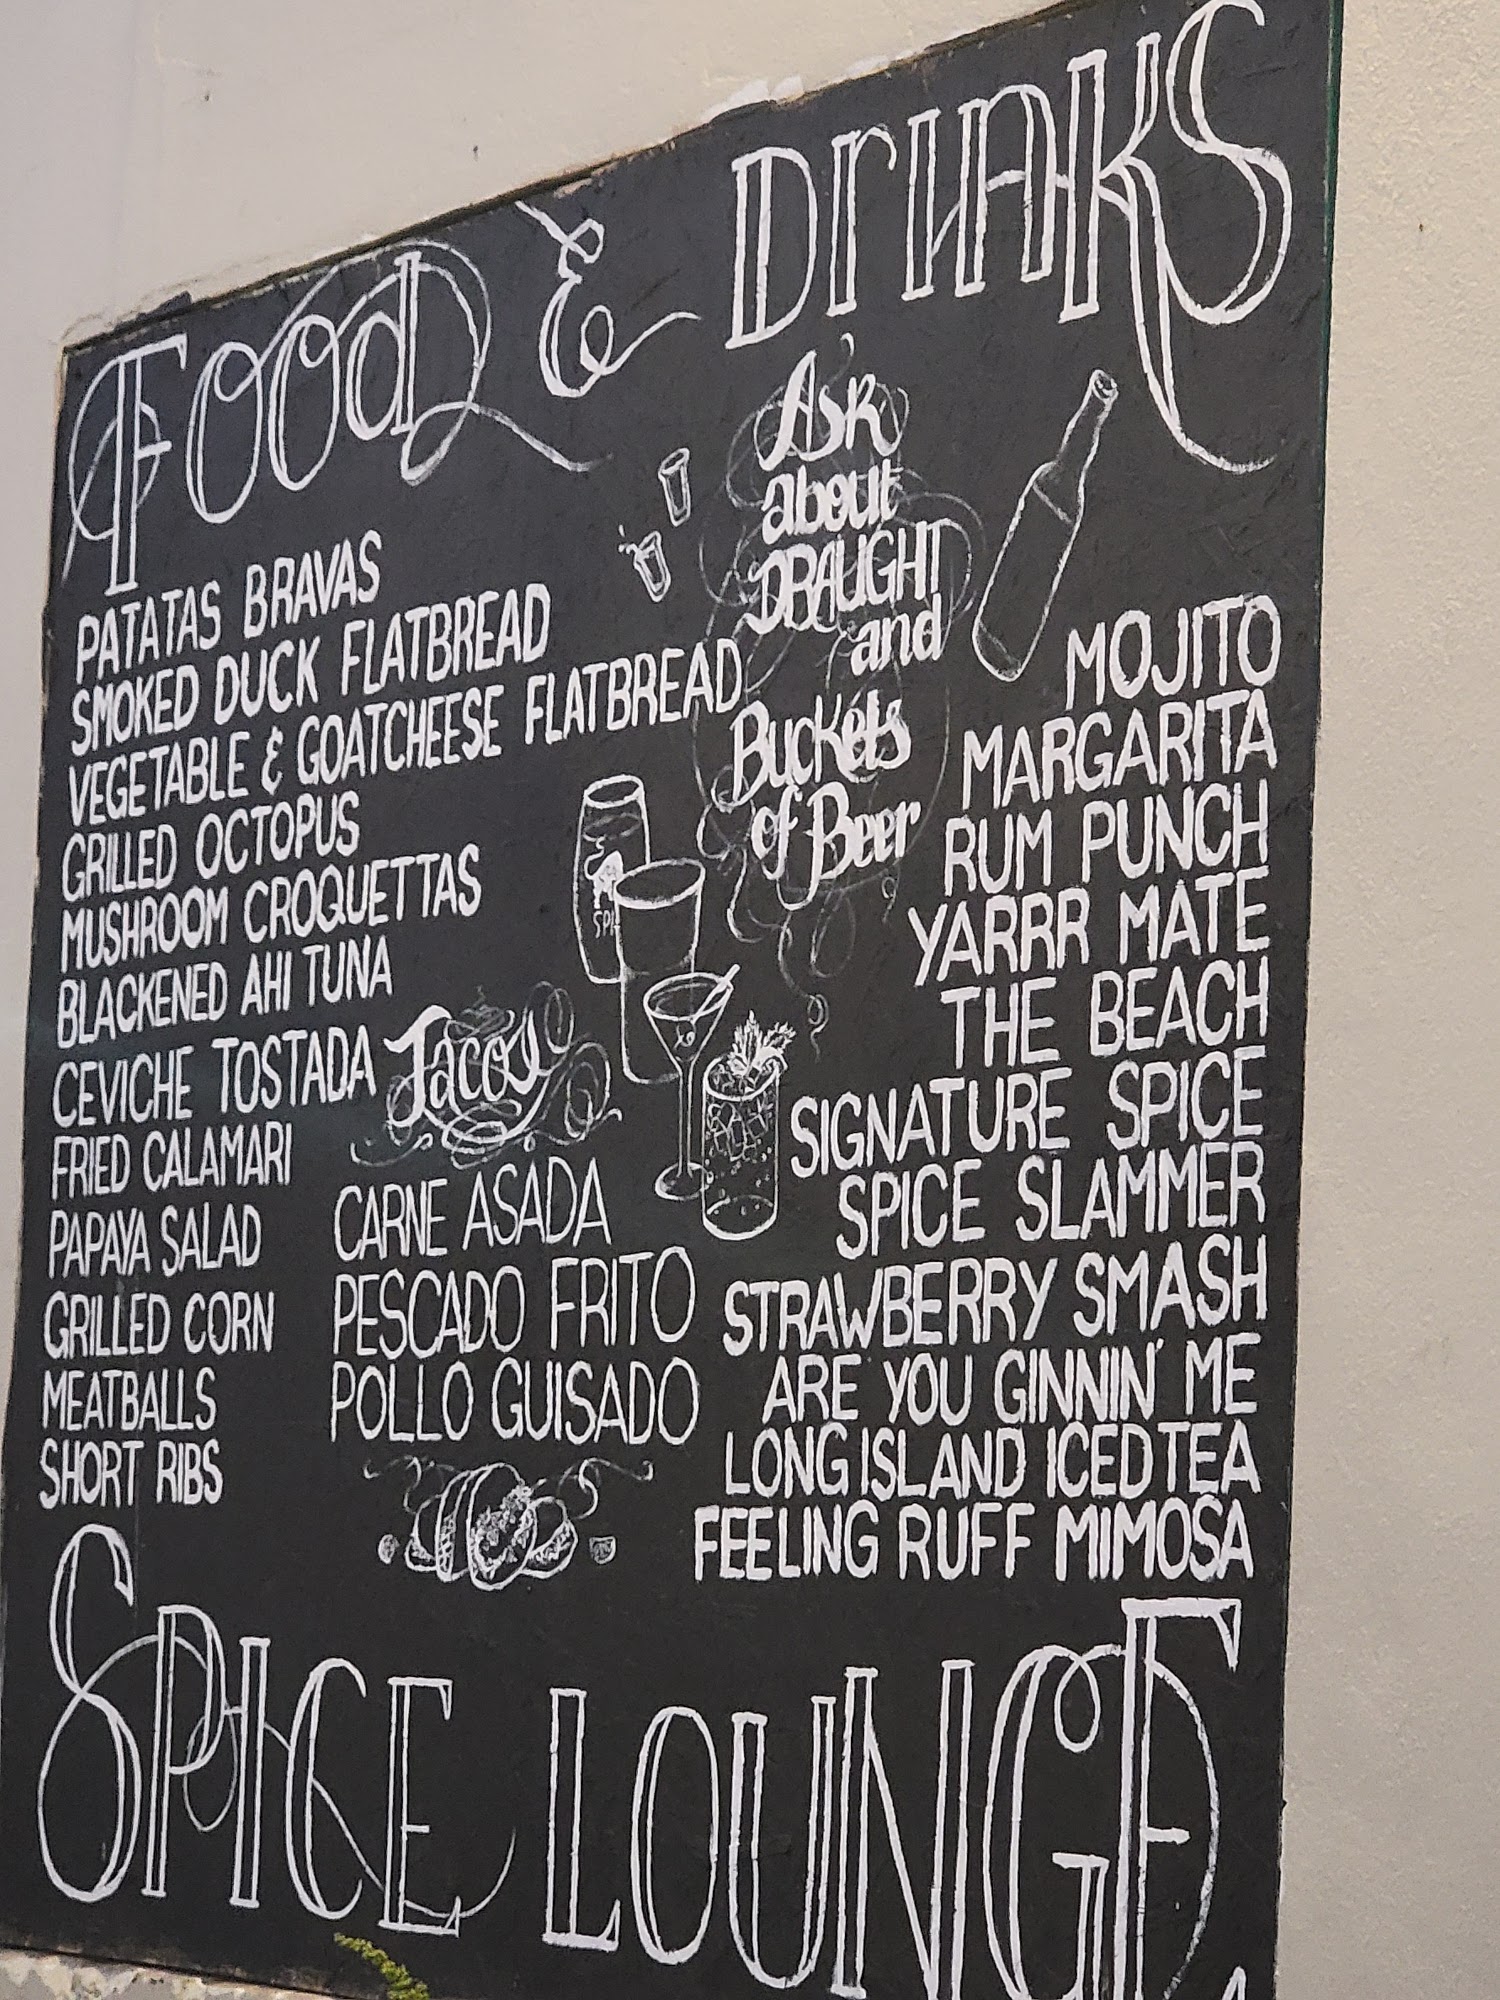 Food & Drinks
PATATAS BRAVAS
SMOKED DUCK FLATBREAD
VEGETABLE & GOATCHEESE FLATBREAD
GRILLED OCTOPUS
MUSHROOM CROQUETTAS
BLACKENED AHI TUNA
CEVICHE TOSTADA
FRIED CALAMARI
PAPAYA SALAD
GRILLED CORN
MEATBALLS
SHORT RIBS
Tacos
CARNE ASADA
PESCADO FRITO
POLLO GUISADO
Ask
about
DRAUGHT
and
Buckets
of Beer
MOJITO
MARGARITA
RUM PUNCH
YARRR MATE
THE BEACH
SIGNATURE SPICE
SPICE SLAMMER
STRAWBERRY SMASH
ARE YOU GINNIN' ME
LONG ISLAND ICED TEA
FEELING RUFF MIMOSA
SPICE LOUNGE